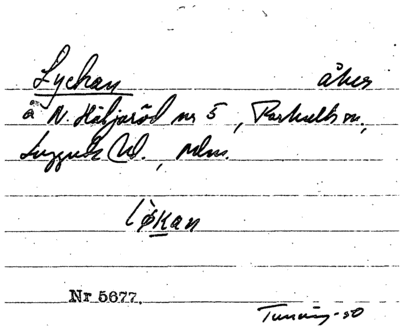 Lyckan åker
å N. Häljaröd nr 5, Parkult sn,
Luggude hd., Mlm.
løkan
Nr 5677.